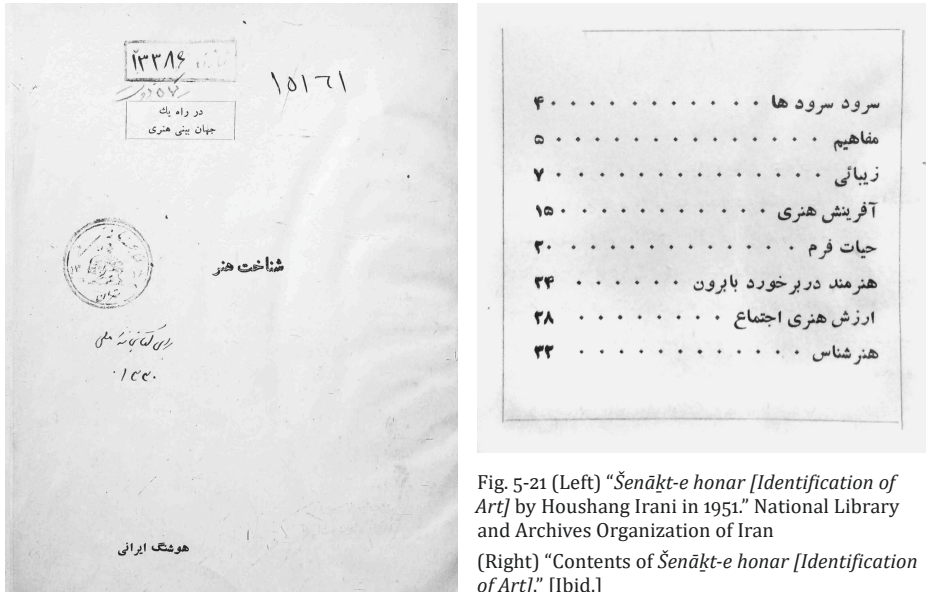 ۱۳۳۸۶
۱۵۱۶۱
در راه یك
جهان بینی هنری
شناخت هنر
برای کتابخانه ملی
۱۳۳۰
هوشنگ ایرانی
سرود سرود ها ۴
مفاهیم ۵
زیبائی ۷
آفرینش هنری ۱۵
حیات فرم ۲۰
هنرمند در برخورد با برون ۲۴
ارزش هنری اجتماع ۲۸
هنر شناس ۳۲
Fig. 5-21 (Left) “Šenāḵt-e honar [Identification of
Art] by Houshang Irani in 1951.” National Library
and Archives Organization of Iran
(Right) “Contents of Šenāḵt-e honar [Identification
of Art].” [Ibid.]